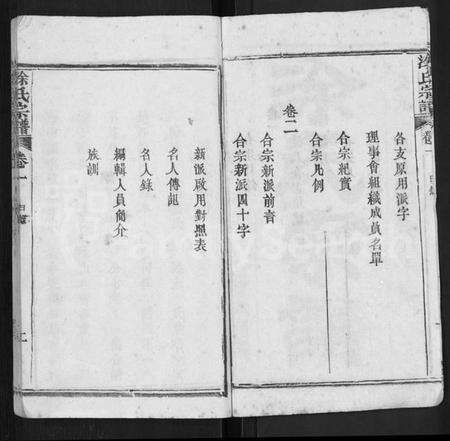 各支原用派字
理事會組織成員名單
合宗紀實
合宗凡例
卷二
合宗新派前言
合宗新派四十字
新派啟用對照表
名人傳記
名人錄
編輯人員簡介
族訓
氏宗譜
卷一